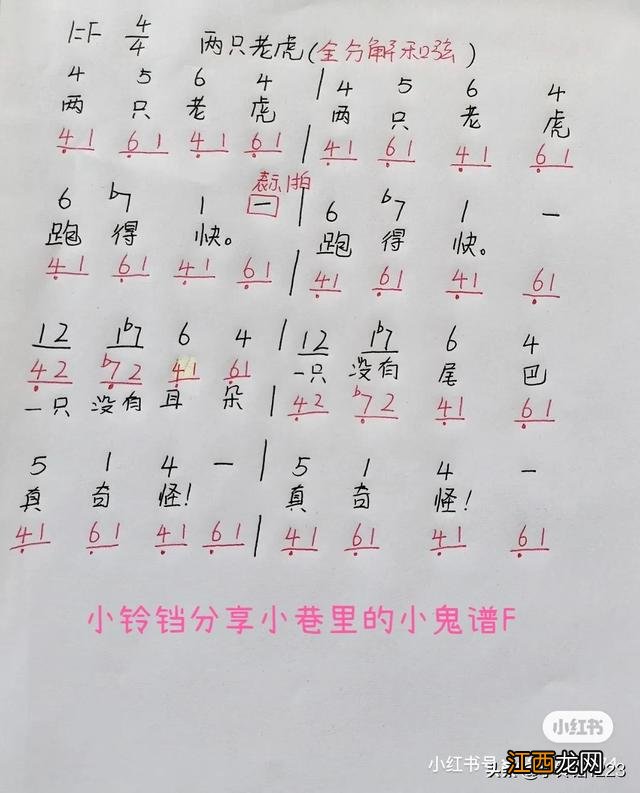 1=F 4/4 两只老虎(全分解和弦)
4 5 6 4 | 4 5 6 4
两 只 老 虎 两 只 老 虎
41 61 41 61 | 41 61 41 61
表示1拍
6 b7 1 — | 6 b7 1 —
跑 得 快。 跑 得 快。
41 61 41 61 | 41 61 41 61
12 1b7 6 4 | 12 1b7 6 4
一只 没有 尾 巴
42 b72 41 61
一只 没有 耳 朵 | 42 b72 41 61
5 1 4 — | 5 1 4 —
真 奇 怪! 真 奇 怪!
41 61 41 61 | 41 61 41 61
小铃铛分享小巷里的小鬼谱F
小红书
小红书号
江西龙网